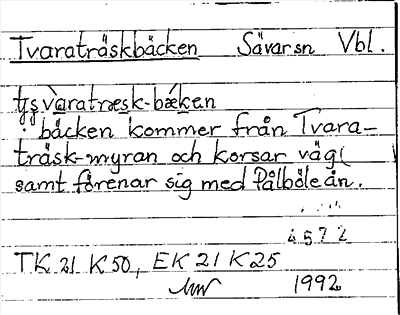 Tvaraträskbäcken Sävar sn Vbl.
bäcken kommer från Tvara-
träsk-myran och korsar väg(
samt förenar sig med Pålböleån.
4572
TK 21 K 50, EK 21 K 25
1992